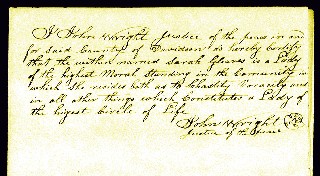 I John Wright Justice of the peace in and
for said County of Davidson do hereby Certify
that the within named Sarah Gleaves is a Lady
of the highest Moral Standing in the Community in
which She resides both as to Chastity Varacety and
in all other things which Constitutes a Lady of
the higest Circle of Life
John Wright
Justice of the peace